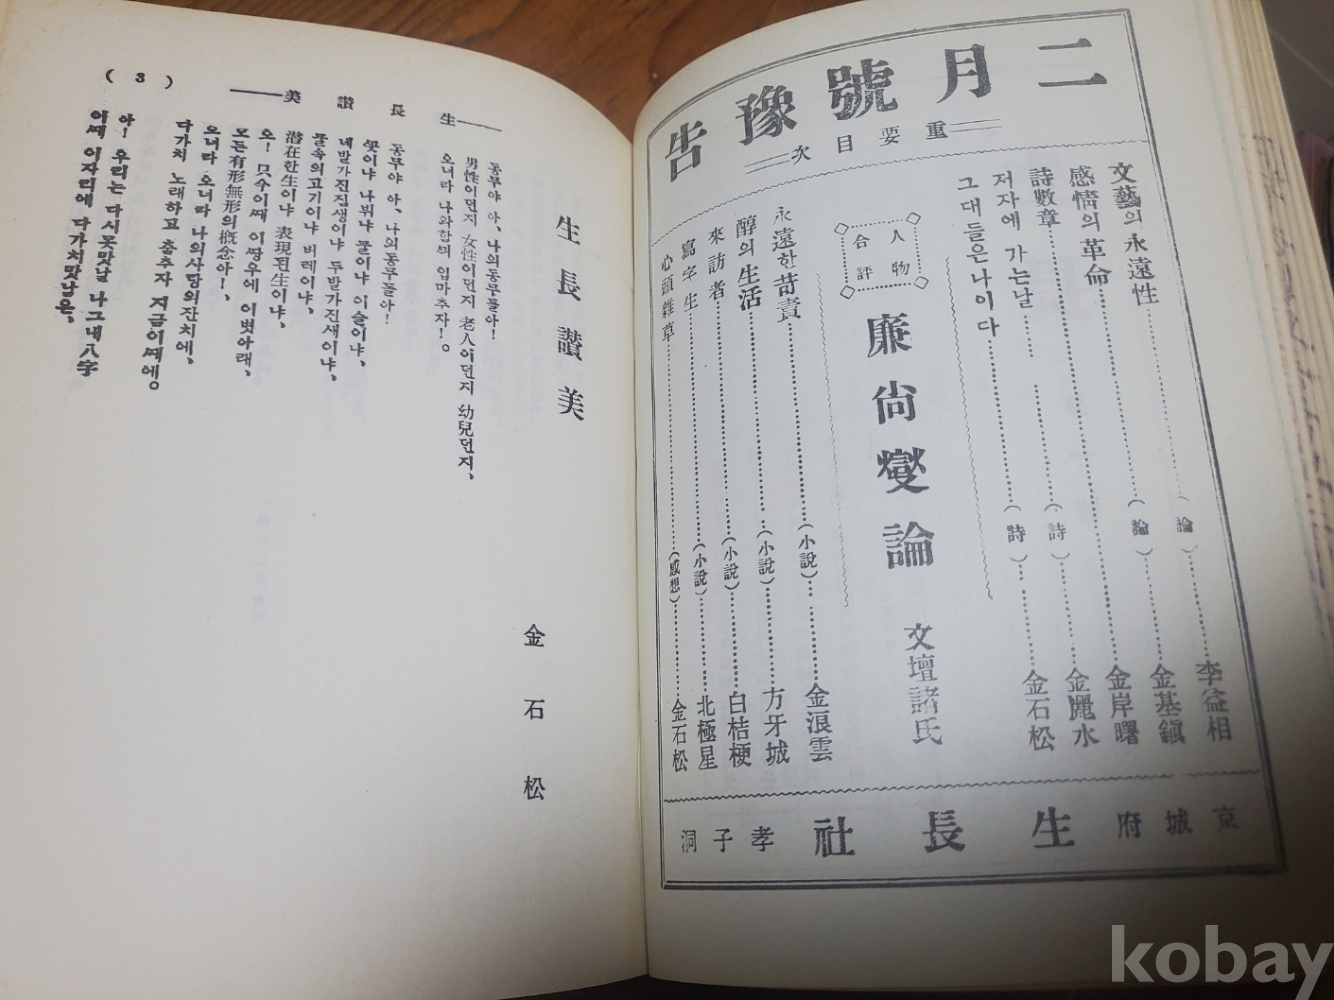 二月號豫告
重要目次
文藝의 永遠性……(論)……李益相
感情의 革命……(論)……金基鎭
詩數章……(詩)……金岸曙
저자에 가는날……金麗水
그대들은나이다……(詩)……金石松
人物合評
廉尙燮論
文壇諸氏
永遠한 苛責……(小說)……金浪雲
醇의 生活……(小說)……方牙城
來訪者……(小說)……白桔梗
寫字生……(小說)……北極星
心頭雜草……(感想)……金石松
京城府
生長社
孝子洞
生長讚美
金石松
동무야 아、나의동무들아!
男性이던지 女性이던지 老人이던지 幼兒던지、
오너라 나와함께 입마추자!。
동무야 아、나의동무들아!
꼿이냐 나뷔냐 풀이냐 이슬이냐、
네발가진짐생이냐 두발가진새이냐、
물속의고기이냐 버레이냐、
潜在한生이냐 表現된生이냐、
오! 只今이때 이땅우에 이볏아래、
모든有形無形의槪念아!、
오너라 오너라 나의사랑의잔치에、
다가치 노래하고 춤추자 지금이때에。
아! 우리는 다시못맛날 나그내八字
이때 이자리에 다가치맛남은、
生長讚美
( 3 )
kobay